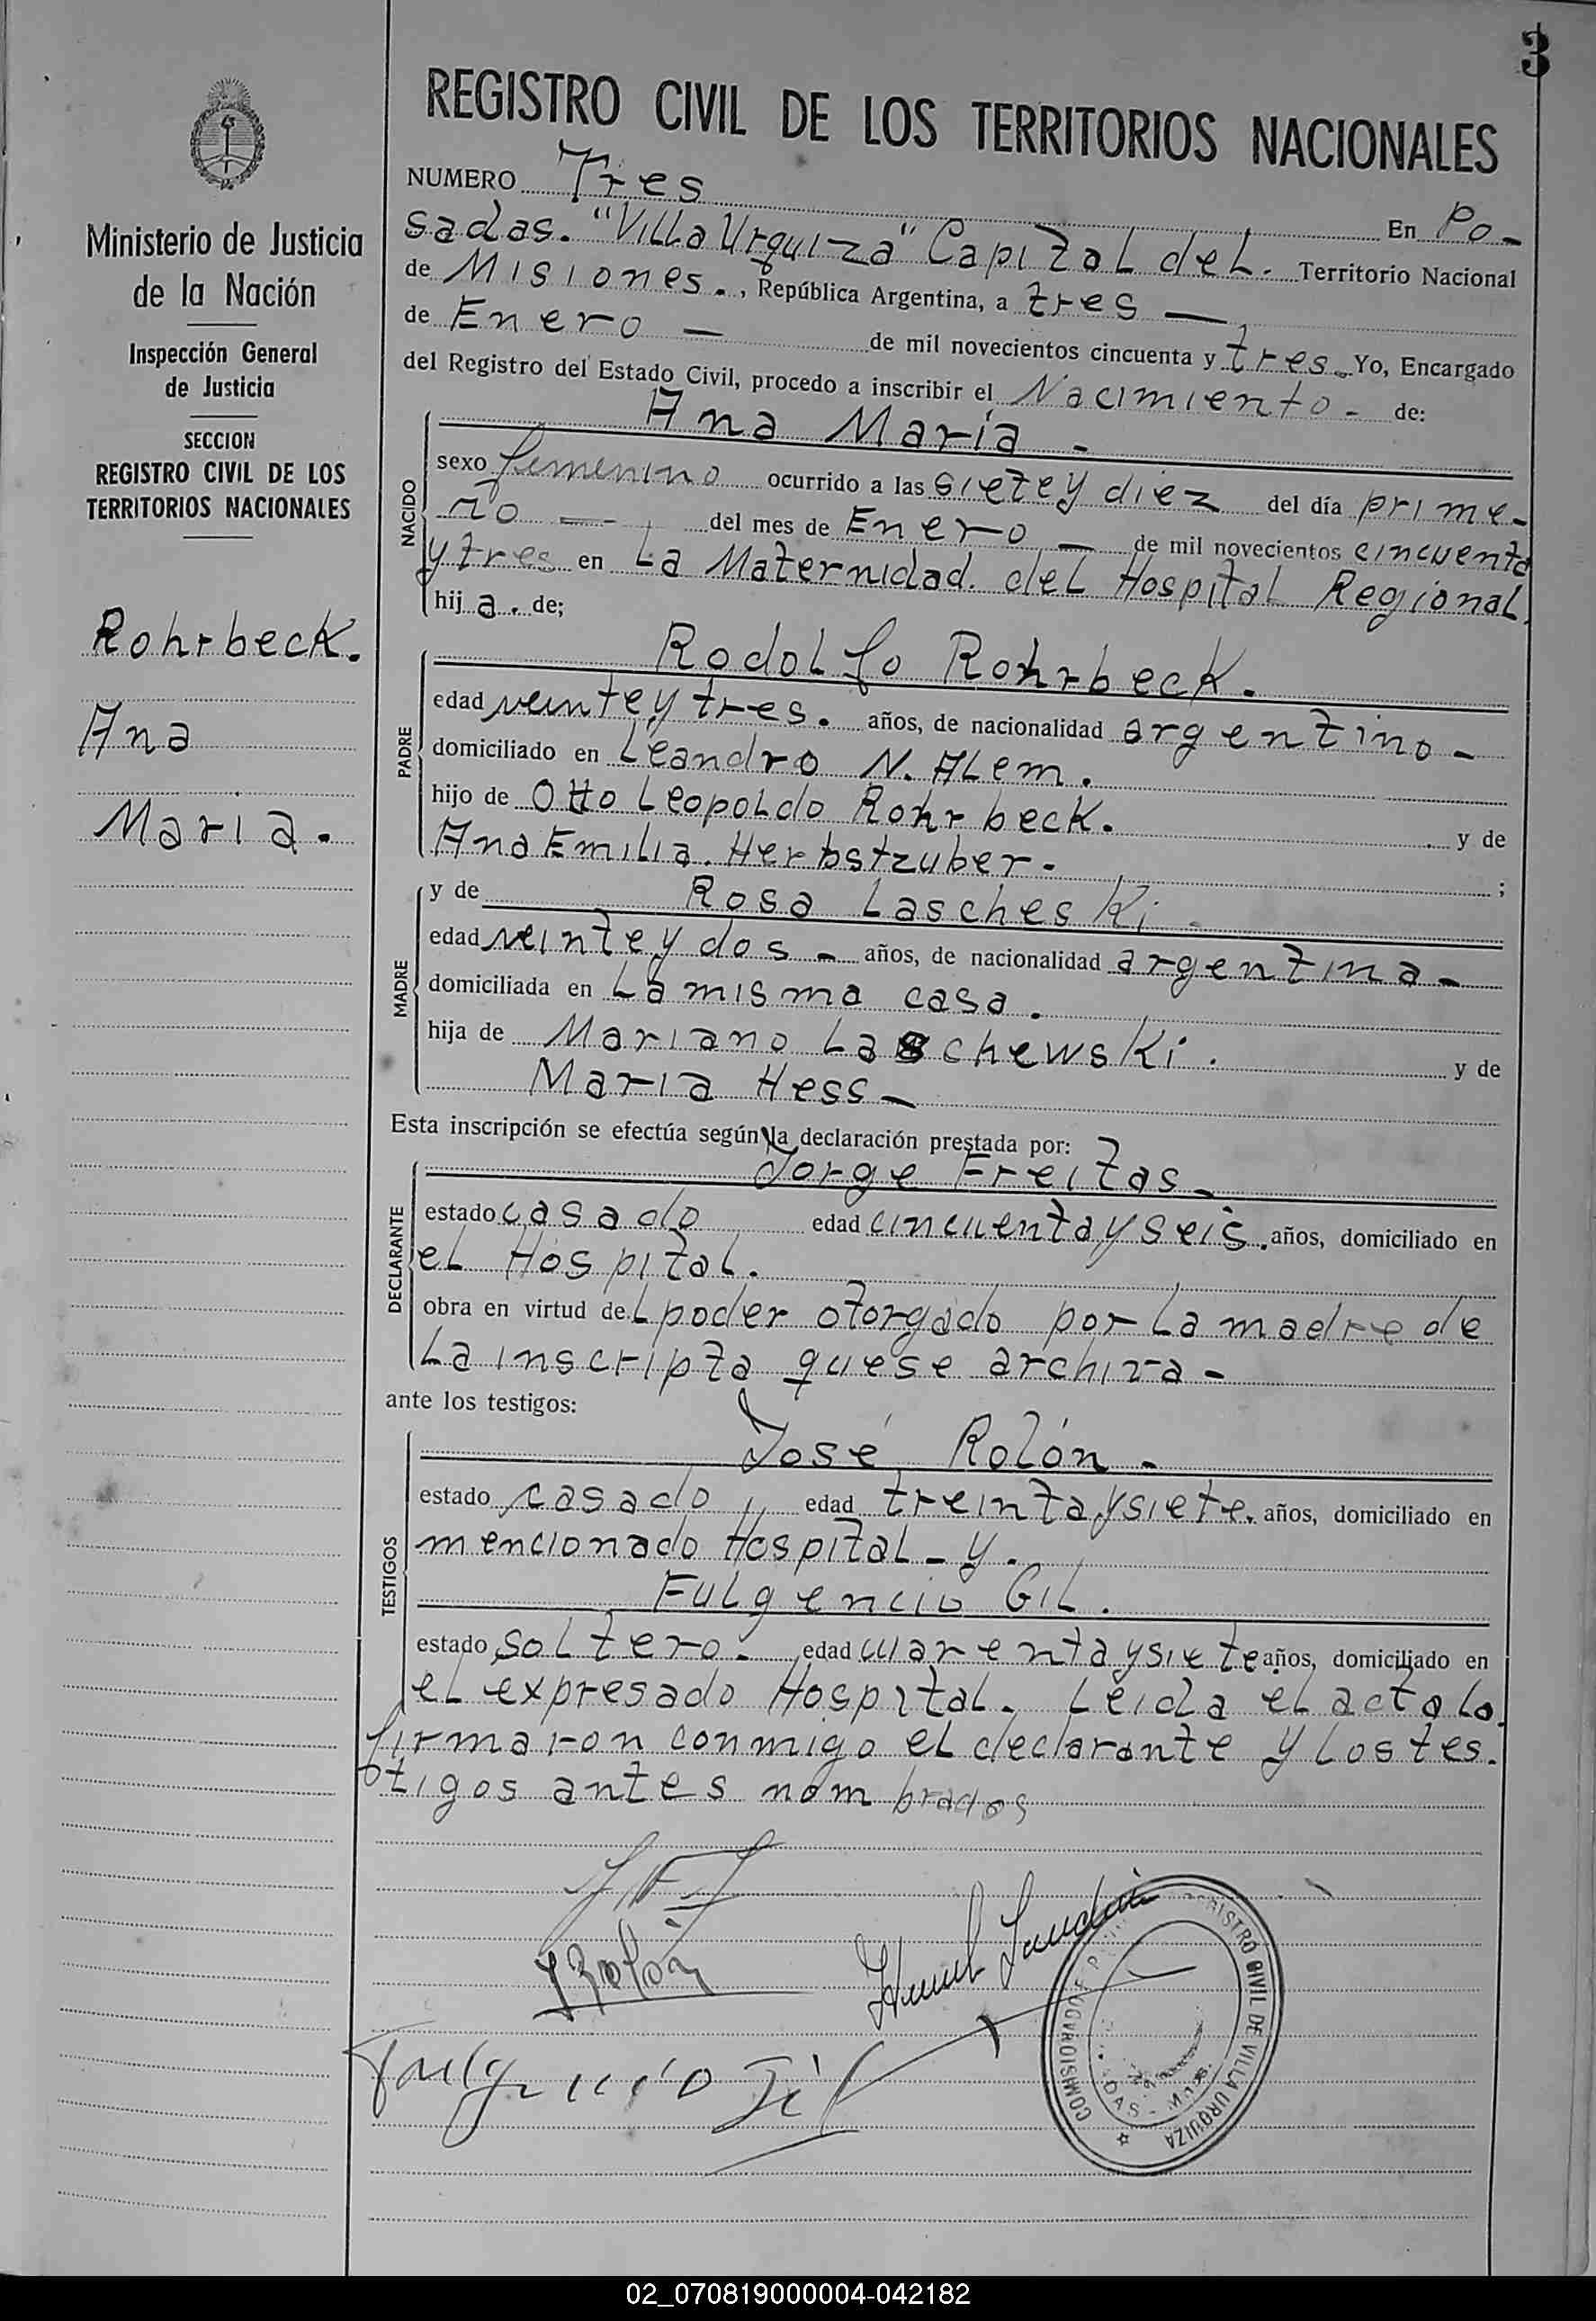 3
REGISTRO CIVIL DE LOS TERRITORIOS NACIONALES
Ministerio de Justicia
de la Nación
Inspección General
de Justicia
SECCION
REGISTRO CIVIL DE LOS
TERRITORIOS NACIONALES
Rohrbeck.
Ana
Maria.
NUMERO Tres En Po-
sadas. "Villa Urquiza" Capital del. Territorio Nacional
de Misiones., República Argentina, a tres —
de Enero — de mil novecientos cincuenta y tres. Yo, Encargado
del Registro del Estado Civil, procedo a inscribir el Nacimiento - de:
NACIDO
Ana María -
sexo femenino ocurrido a las siete y diez del día prime-
ro — del mes de Enero — de mil novecientos cincuenta
y tres en La Maternidad del Hospital Regional.
hij a. de;
PADRE
Rodolfo Rohrbeck.
edad veinte y tres. años, de nacionalidad argentino -
domiciliado en Leandro N. Alem.
hijo de Otto Leopoldo Rohrbeck. y de
Ana Emilia Herbstzuber. ;
MADRE
y de Rosa Lascheski -
edad veinte y dos - años, de nacionalidad argentina -
domiciliada en La misma casa.
hija de Mariano Laschewski. y de
Maria Hess -
Esta inscripción se efectúa según la declaración prestada por:
DECLARANTE
Jorge Freitas -
estado casado edad cincuenta y seis. años, domiciliado en
el Hospital.
obra en virtud del poder otorgado por la madre de
la inscripta que se archiva -
ante los testigos:
TESTIGOS
José Rolón -
estado casado, edad treinta y siete. años, domiciliado en
mencionado Hospital - y.
Fulgencio Gil.
estado soltero. edad cuarenta y siete años, domiciliado en
el expresado Hospital. Leida el acta la
firmaron conmigo el declarante y los tes-
tigos antes nombrados
JRolón
Fulgencio Gil
REGISTRO CIVIL DE VILLA URQUIZA
02_070819000004-042182